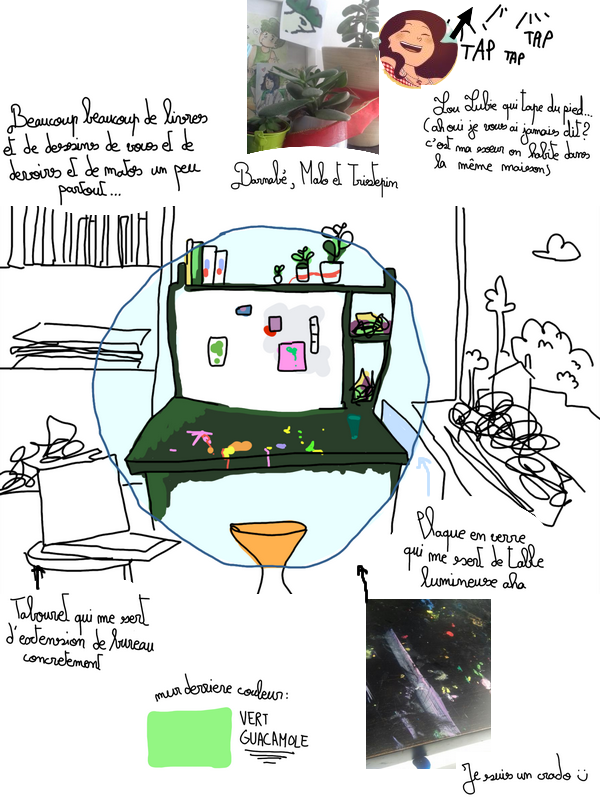 TAP TAP TAP
Beaucoup beaucoup de livres
et de dessins de vous et de
devoirs et de matos un peu
partout...
Barnabé, Malo et Tristepin
Lou Lubie qui tape du pied...
(ah oui je vous ai jamais dit?
c'est ma soeur on habite dans
la même maison)
Plaque en verre
qui me sert de table
lumineuse aha
Tabouret qui me sert
d'extension de bureau
concrètement
mur derriere couleur:
VERT
GUACAMOLE
Je suis un crado